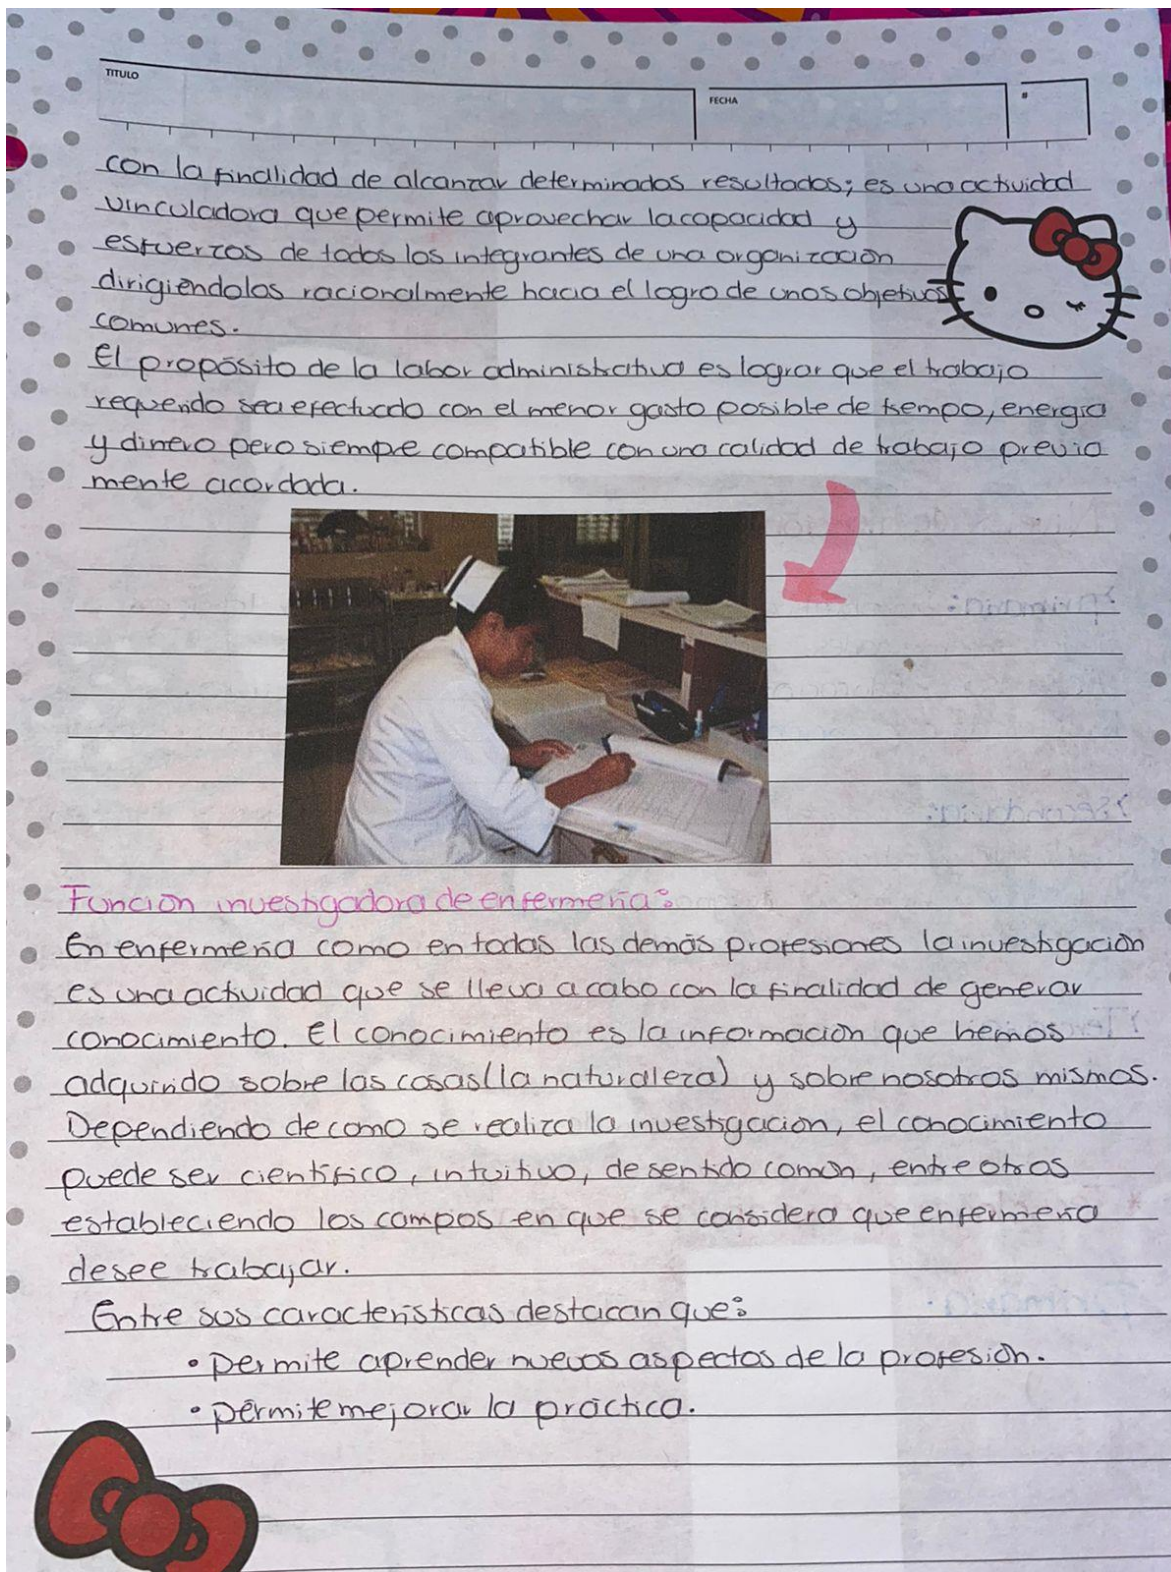 TITULO
FECHA
#
con la finalidad de alcanzar determinados resultados; es una actividad
vinculadora que permite aprovechar la capacidad y
esfuerzos de todos los integrantes de una organización
dirigiéndolos racionalmente hacia el logro de unos objetivos
comunes.
El propósito de la labor administrativa es lograr que el trabajo
requerido sea efectuado con el menor gasto posible de tiempo, energía
y dinero pero siempre compatible con una calidad de trabajo previa
mente acordada.
Función investigadora de enfermería:
En enfermería como en todas las demás profesiones la investigación
es una actividad que se lleva a cabo con la finalidad de generar
conocimiento. El conocimiento es la información que hemos
adquirido sobre las cosas (la naturaleza) y sobre nosotros mismos.
Dependiendo de como se realiza la investigación, el conocimiento
puede ser científico, intuitivo, de sentido común, entre otros
estableciendo los campos en que se considera que enfermería
desee trabajar.
Entre sus características destacan que:
• permite aprender nuevos aspectos de la profesión.
• permite mejorar la práctica.